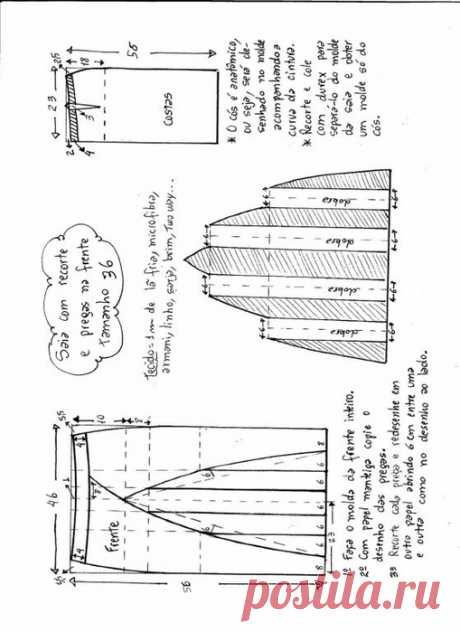 Saia com recorte
e pregas na frente
tamanho 36
Tecido = 1m de lã fria, microfibra,
armani, linho, sarja, brim, Two way...
* O cós é anatômico,
ou seja, será de-
senhado no molde
acompanhando a
curva da cintura.
* Recorte e cole
com durex para
separá-lo do molde
da saia e obter
um molde só do
cós.
56
18
2
23
3
2
4
Costas
6
dobra
6
6
dobra
6
6
dobra
6
6
dobra
6
46
10
8
1
4
4
Frente
6
6
8
6
6
6
6
8
23
56
1º Faça o molde da frente inteiro.
2º Com papel manteiga copie o
desenho das pregas.
3º Recorte cada prega e redesenhe em
outro papel abrindo 6 cm entre uma
e outra como no desenho ao lado.
postila.ru